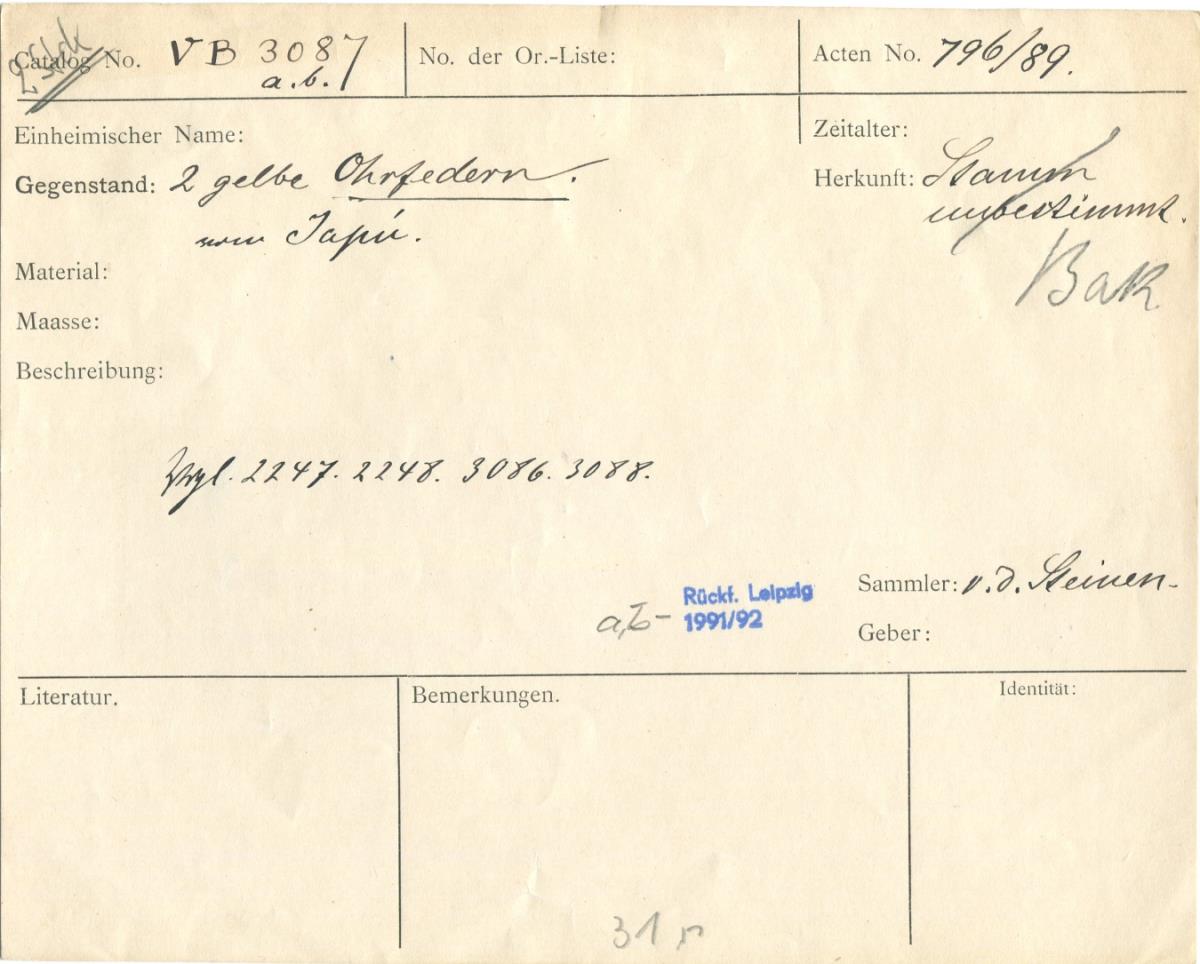 2 Stck
Catalog No. VB 3087
a.b.
No. der Or.-Liste:
Acten No. 796/89.
Einheimischer Name:
Zeitalter:
Gegenstand: 2 gelbe Ohrfedern.
vom Japú.
Herkunft: Stamm
unbestimmt.
Bak
Material:
Maasse:
Beschreibung:
Vgl. 2247. 2248. 3086. 3088.
Sammler: v. d. Steinen
a,b- Rückf. Leipzig
1991/92
Geber:
Literatur.
Bemerkungen.
Identität:
31